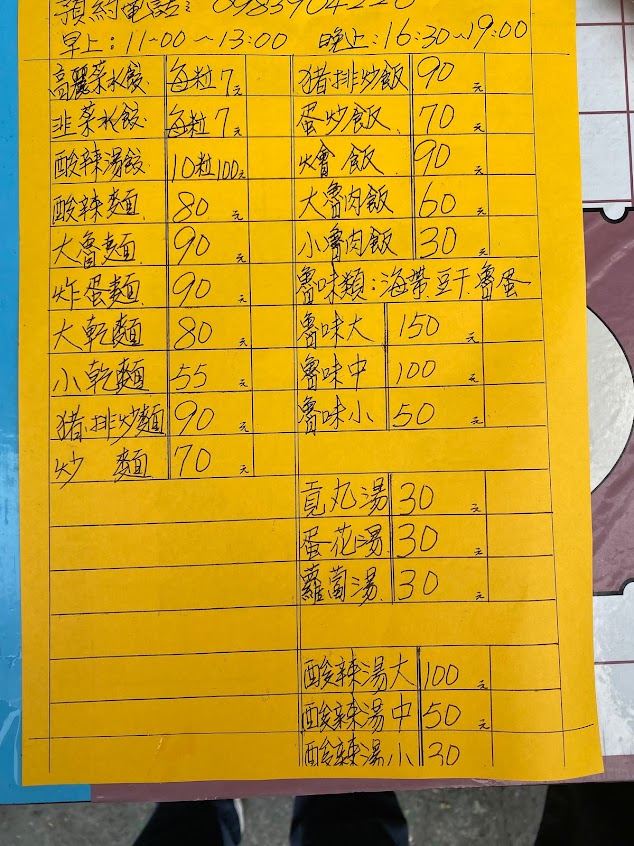 預約電話: 0983904220
早上:11-00~13:00 晚上:16:30~19:00
高麗菜水餃 每粒7元
韭菜水餃 每粒7元
酸辣湯餃 10粒100元
酸辣麵 80元
大魯麵 90元
炸蛋麵 90元
大乾麵 80元
小乾麵 55元
豬排炒麵 90元
炒麵 70元
豬排炒飯 90元
蛋炒飯 70元
燴飯 90元
大魯肉飯 60元
小魯肉飯 30元
魯味類:海帶.豆干.魯蛋
魯味大 150元
魯味中 100元
魯味小 50元
貢丸湯 30元
蛋花湯 30元
蘿蔔湯 30元
酸辣湯大 100元
酸辣湯中 50元
酸辣湯小 30